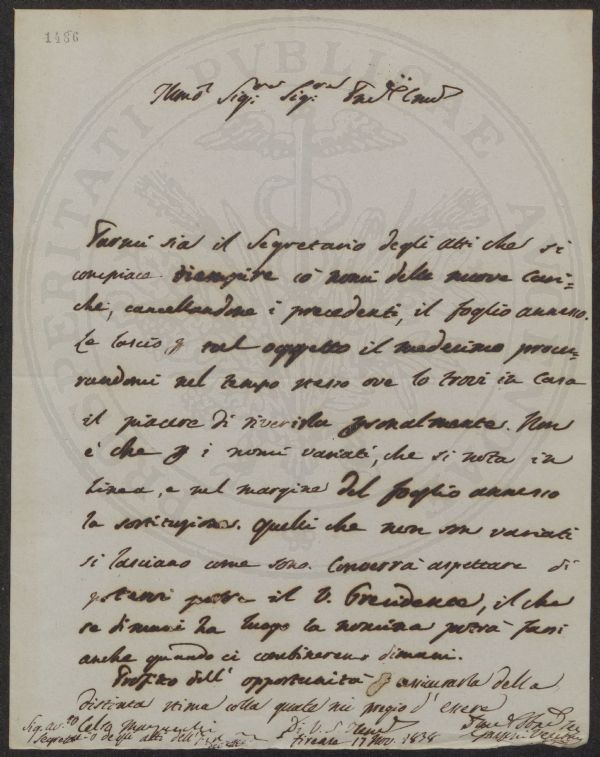 1486
Illmo Sigr Sigr
Parmi sia il Segretario degli atti che si
compiace riempire co' nomi delle nuove cari=
che, cancellandone i precedenti, il foglio annesso.
Le lascio p tal oggetto il medesimo procu=
randomi nel tempo stesso ove lo trovi in casa
il piacere di riverirla psonalmente. Non
è che p i nomi variati, che si nota in
linea, e nel margine del foglio annesso
la sostituzione. Quelli che non son variati
si lasciano come sono. Converrà aspettare di
potervi porre il V. Presidente, il che
se dimani ha luogo la nomina potrà farsi
anche quando ci combineremo dimani.
Profitto dell' opportunità p assicurarla della
distinta stima colla quale mi pregio d' essere
Di V. S. Illma
Firenze 17 Nov. 1838
Celso Marzucchi
Segreto degli atti dell'
PROSPERITATI PUBLICAE